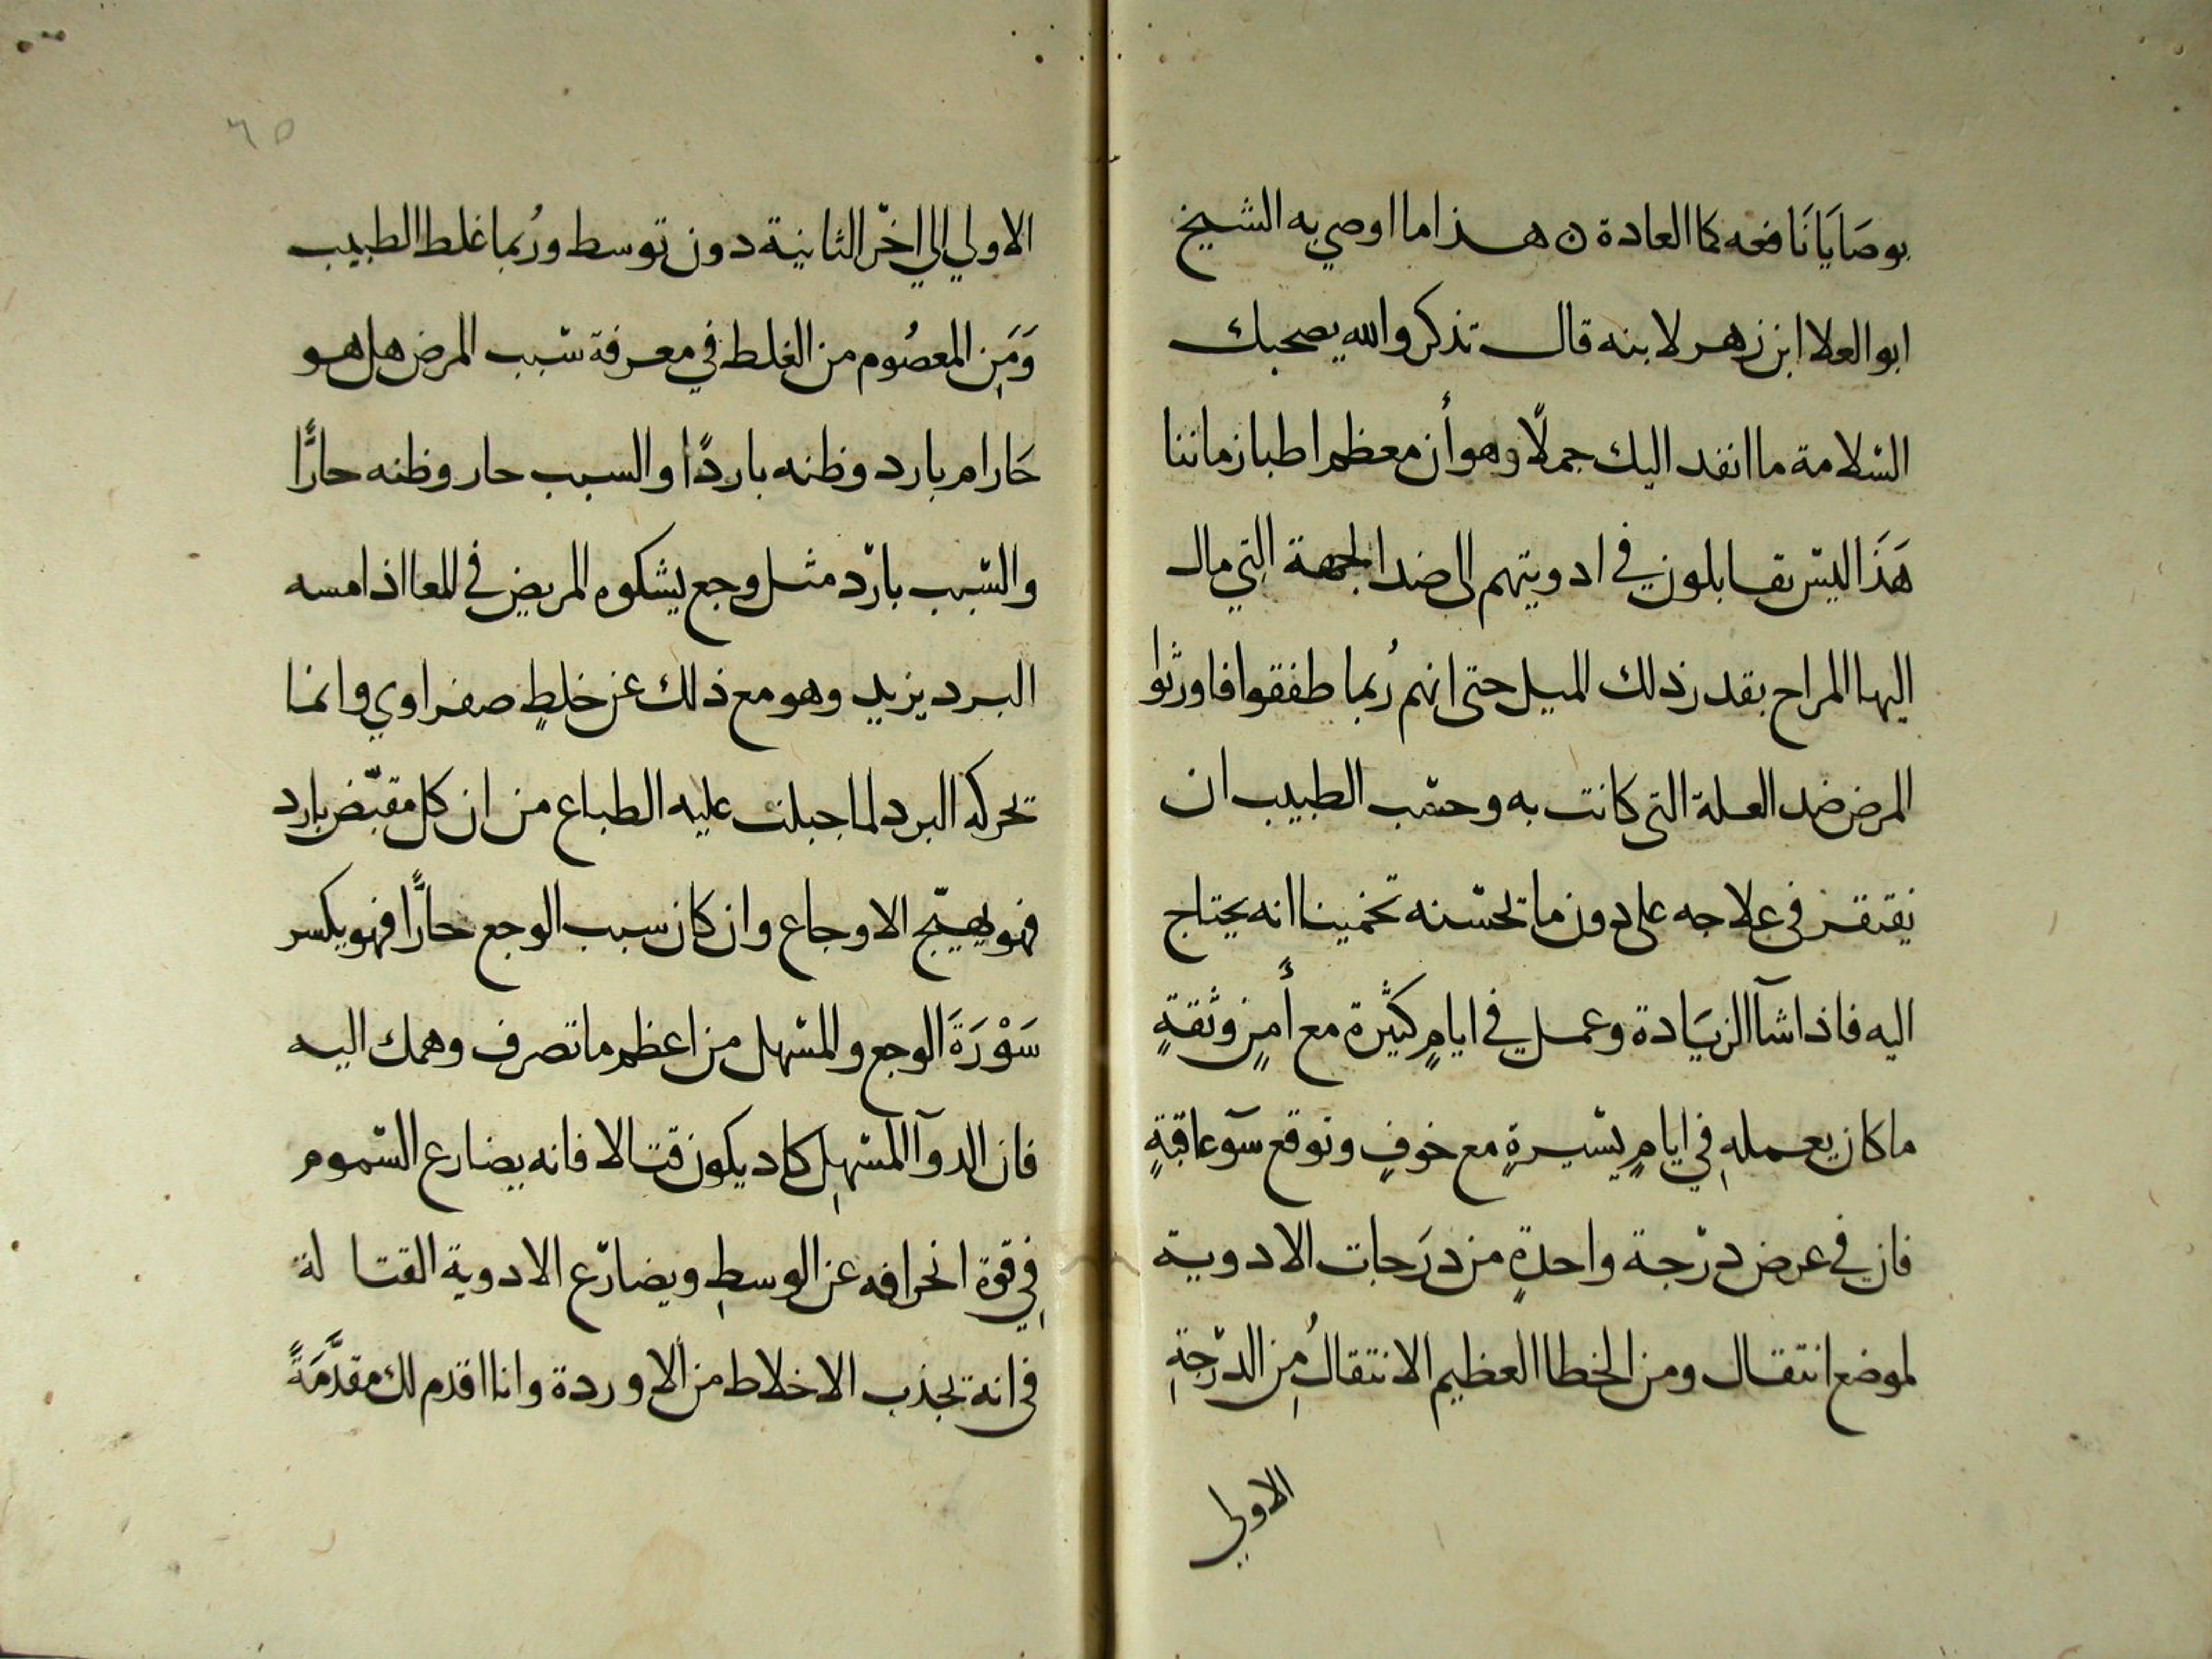 بوصَايَا نَافعه كما العادة ن هـذا ما اوصي به الشيخ
ابو العلا ابن زهر لابنه قال تذكر والله يصحبك
السّلامة ما انفد اليك جملًا وهو أن معظم اطبا زماننا
هَذَا ليسَ يقابلون في ادويتهم الى ضد الجهة التي مال
اليها المزاج بقدر ذلك الميل حتى انهم رُبما طفقوا فاورثوا
المرض ضد العلة التى كانت به وحسْب الطبيب ان
يقتقر فى علاجه على دون ما تحسّنه تخمينا انه يحتاج
اليه فاذا شآ الزيَادة وعمل في ايامٍ كثيرة مع أمنٍ وثقةٍ
ما كان يعملهِ في ايامٍ يسّيرةٍ مع خوفٍ وتوقع سوٓ عاقبةٍ
فان في عرض درّجة واحدةٍ من درَجات الادوية
لموضع انتقال ومن الخطا العظيم الانتقالُ مِن الدرّجةِ
الاولي
٦٥
الاولي الي اخرّ الثانية دون توسط ورُبما غلط الطبيب
وَمَنِ المعصُوم من الغلط في معرفة سّبب المرض هل هو
حَار ام بارد وظنه باردًا والسبب حار وظنه حارًّا
والسّبب بارّد مثل وجع يشكوه المريض في المعا اذا مسه
البرد يزيد وهو مع ذلك عن خلطٍ صفراوي وانما
تحركه البرد لما جبلت عليه الطباع من ان كل مقبّض بارد
فهو يهيّج الاوجاع وان كان سبب الوجع حارًّا فهو يكسر
سَوْرَةَ الوجع والمسّهل من اعظم ما تصرف وهمك اليه
فان الدوآ المسّهِل كاد يكون قتالا فانه يضارع السّموم
فِي قوة انحرافه عن الوسطِ ويضارّع الادوية القتا لة
فى انه يجذب الاخلاط من الاوردة وانا اقدم لك مقدَّمَةً